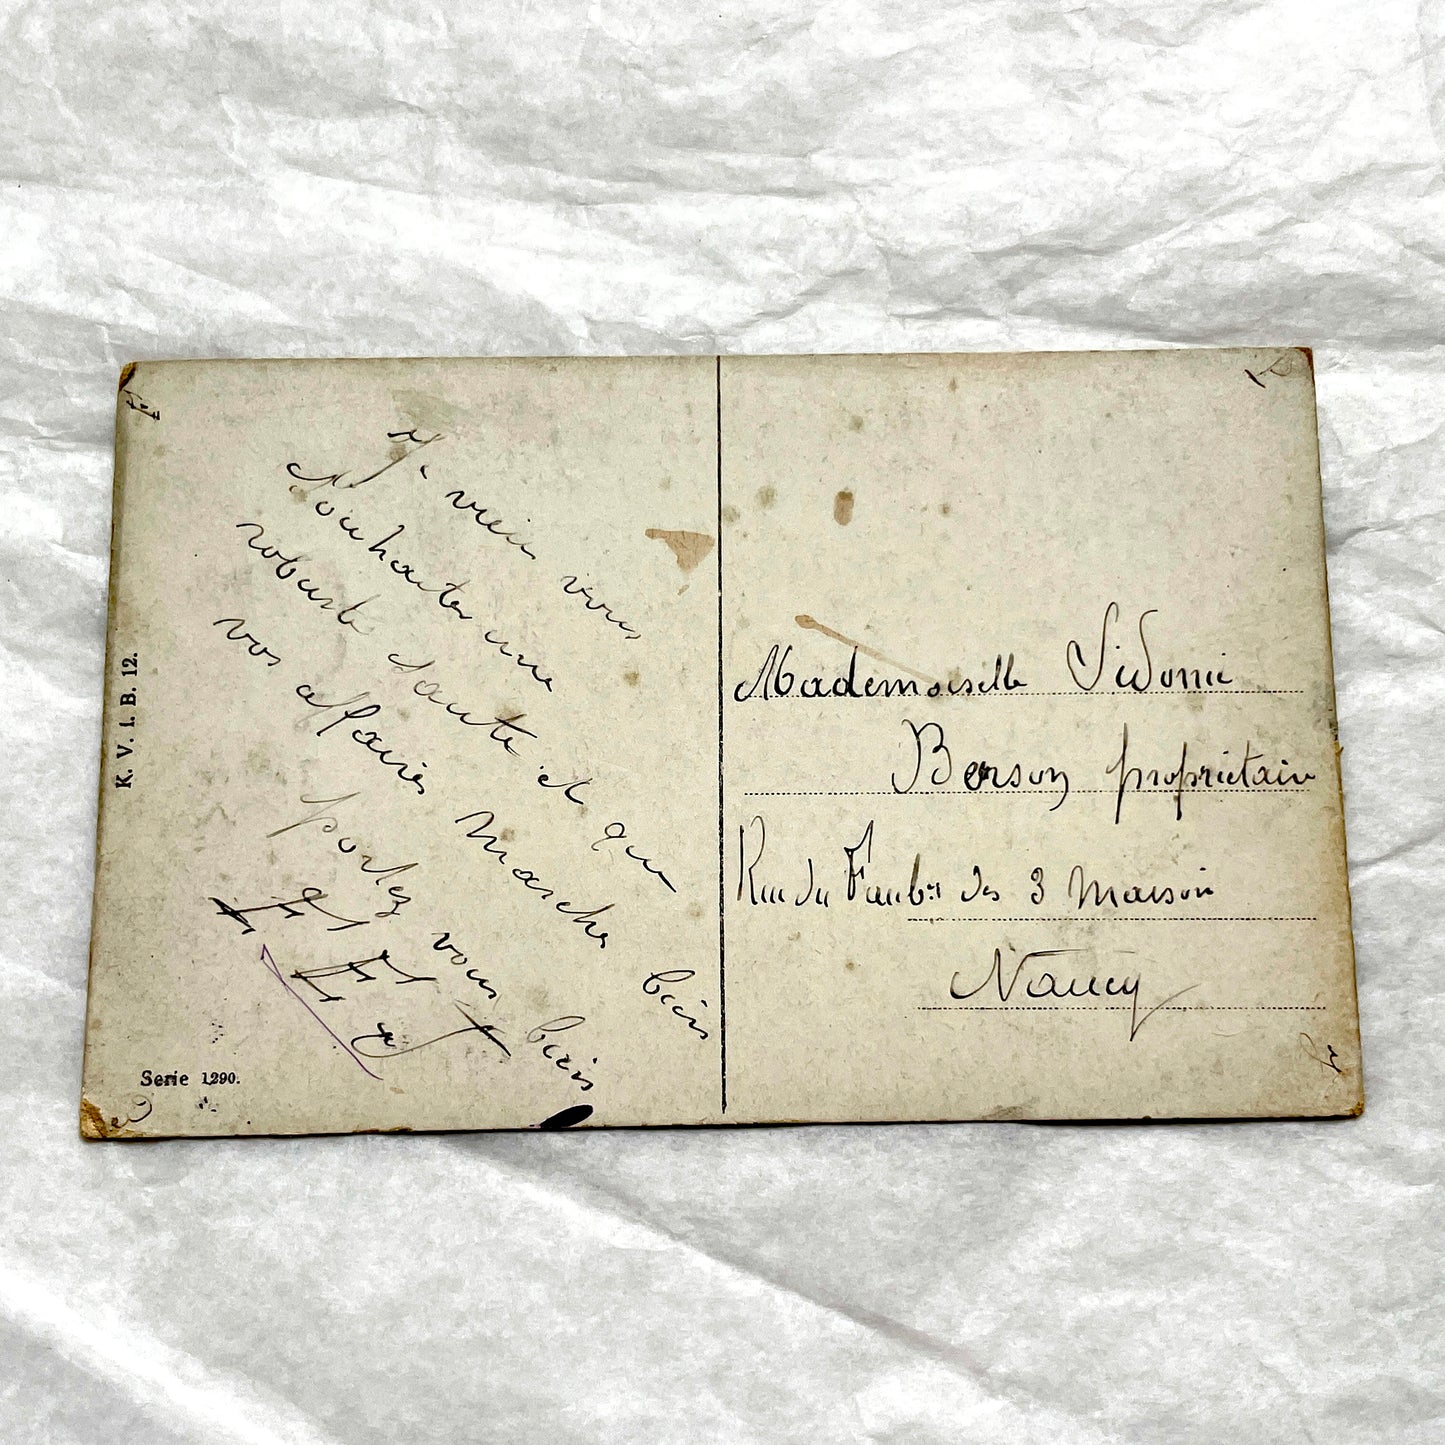 Je viens vous
Souhaiter une
robuste Sante et que
vos affaires marche bien
portez vous bien
K. V. i. B. 12.
Serie 1290.
Mademoiselle Sidonie
Berson propriétaire
Rue du Faubg des 3 Maison
Nancy